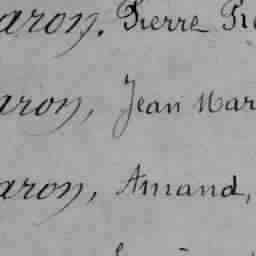 aron. Pierre
aron, Jean Mar
aron, Amand,